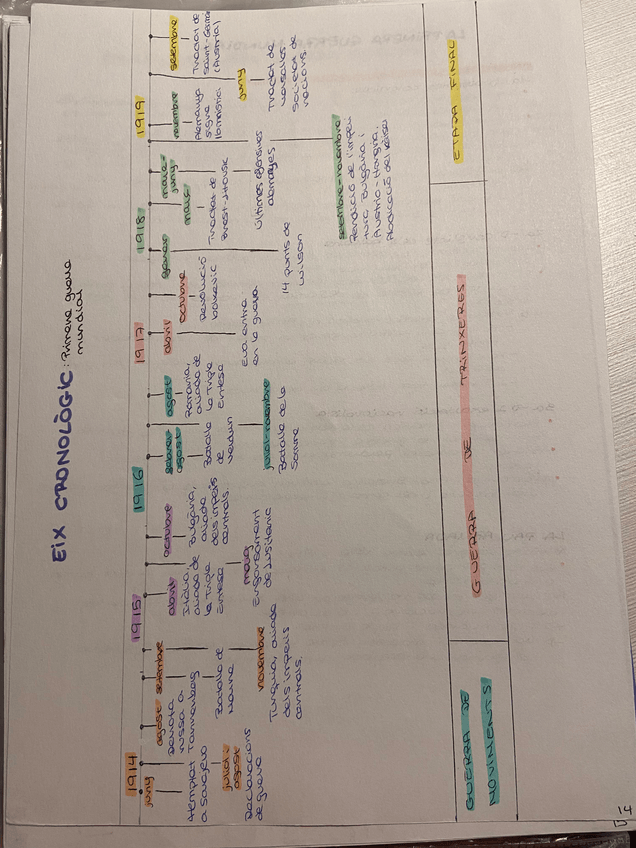 EIX CRONOLÒGIC: Primera guerra
mundial
1914
juny
Atemptat
a Sarajevo
juliol-
agost
Declaracions
de guerra
agost
Derrota
russa a
Tannenberg
setembre
Batalla de
Marne
novembre
Turquia, aliada
dels imperis
centrals.
1915
abril
Itàlia,
aliada de
la Triple
Entesa
maig
Enfonsament
de Lusitanic
octubre
Bulgària,
aliada
dels imperis
centrals.
1916
febrer-
agost
Batalla
de
Verdun
juliol-novembre
Batalla de la
Somme
agost
Romania,
aliada de
la Triple
Entesa
1917
abril
Eua entra
en la guerra.
octubre
Revolució
bolxevic
1918
gener
14 punts de
Wilson
març
Tractat de
Brest-Litovsk
març-
juny
Últimes ofensives
alemanyes
setembre-novembre
Rendició de l'imperi
turc, Bulgària i
Àustria-Hongria.
Abdicació del kàiser
1919
novembre
Alemanya
signa
l'armistici
juny
Tractat de
Versalles
Societat de
nacions
setembre
Tractat de
Saint-Germain
(Àustria)
GUERRA DE
MOVIMENTS
GUERRA DE TRINXERES
ETAPA FINAL
14